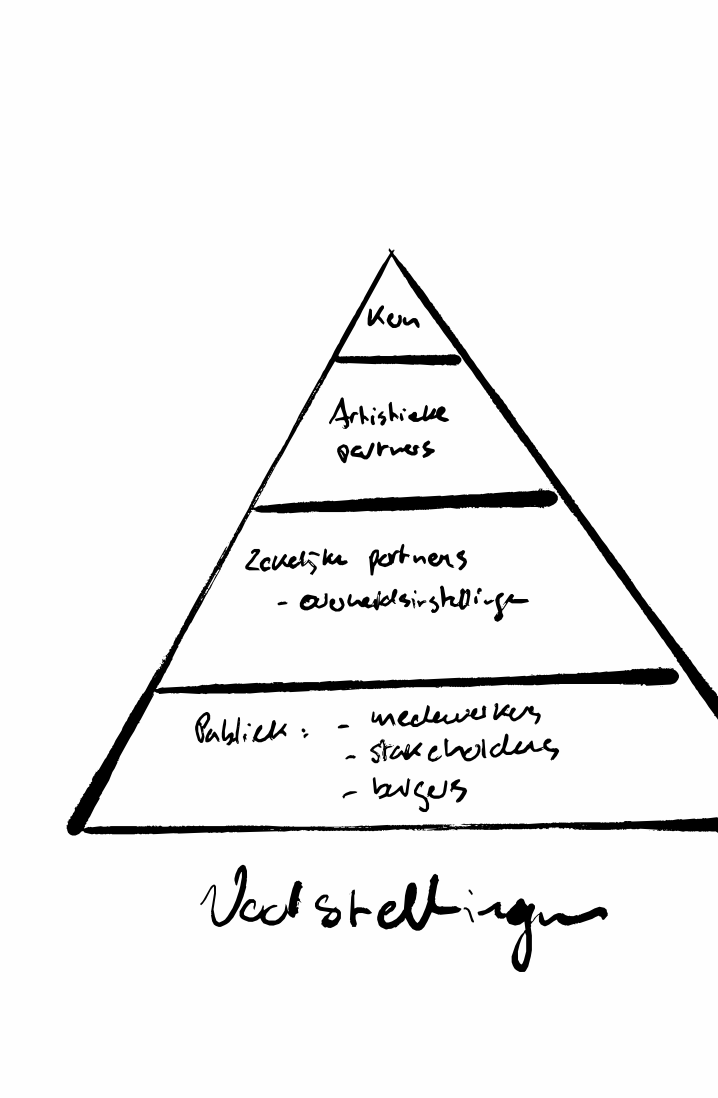 Kern
Artistieke
partners
Zakelijke partners
- overheidsinstellingen
Publiek: - medewerkers
- stakeholders
- burgers